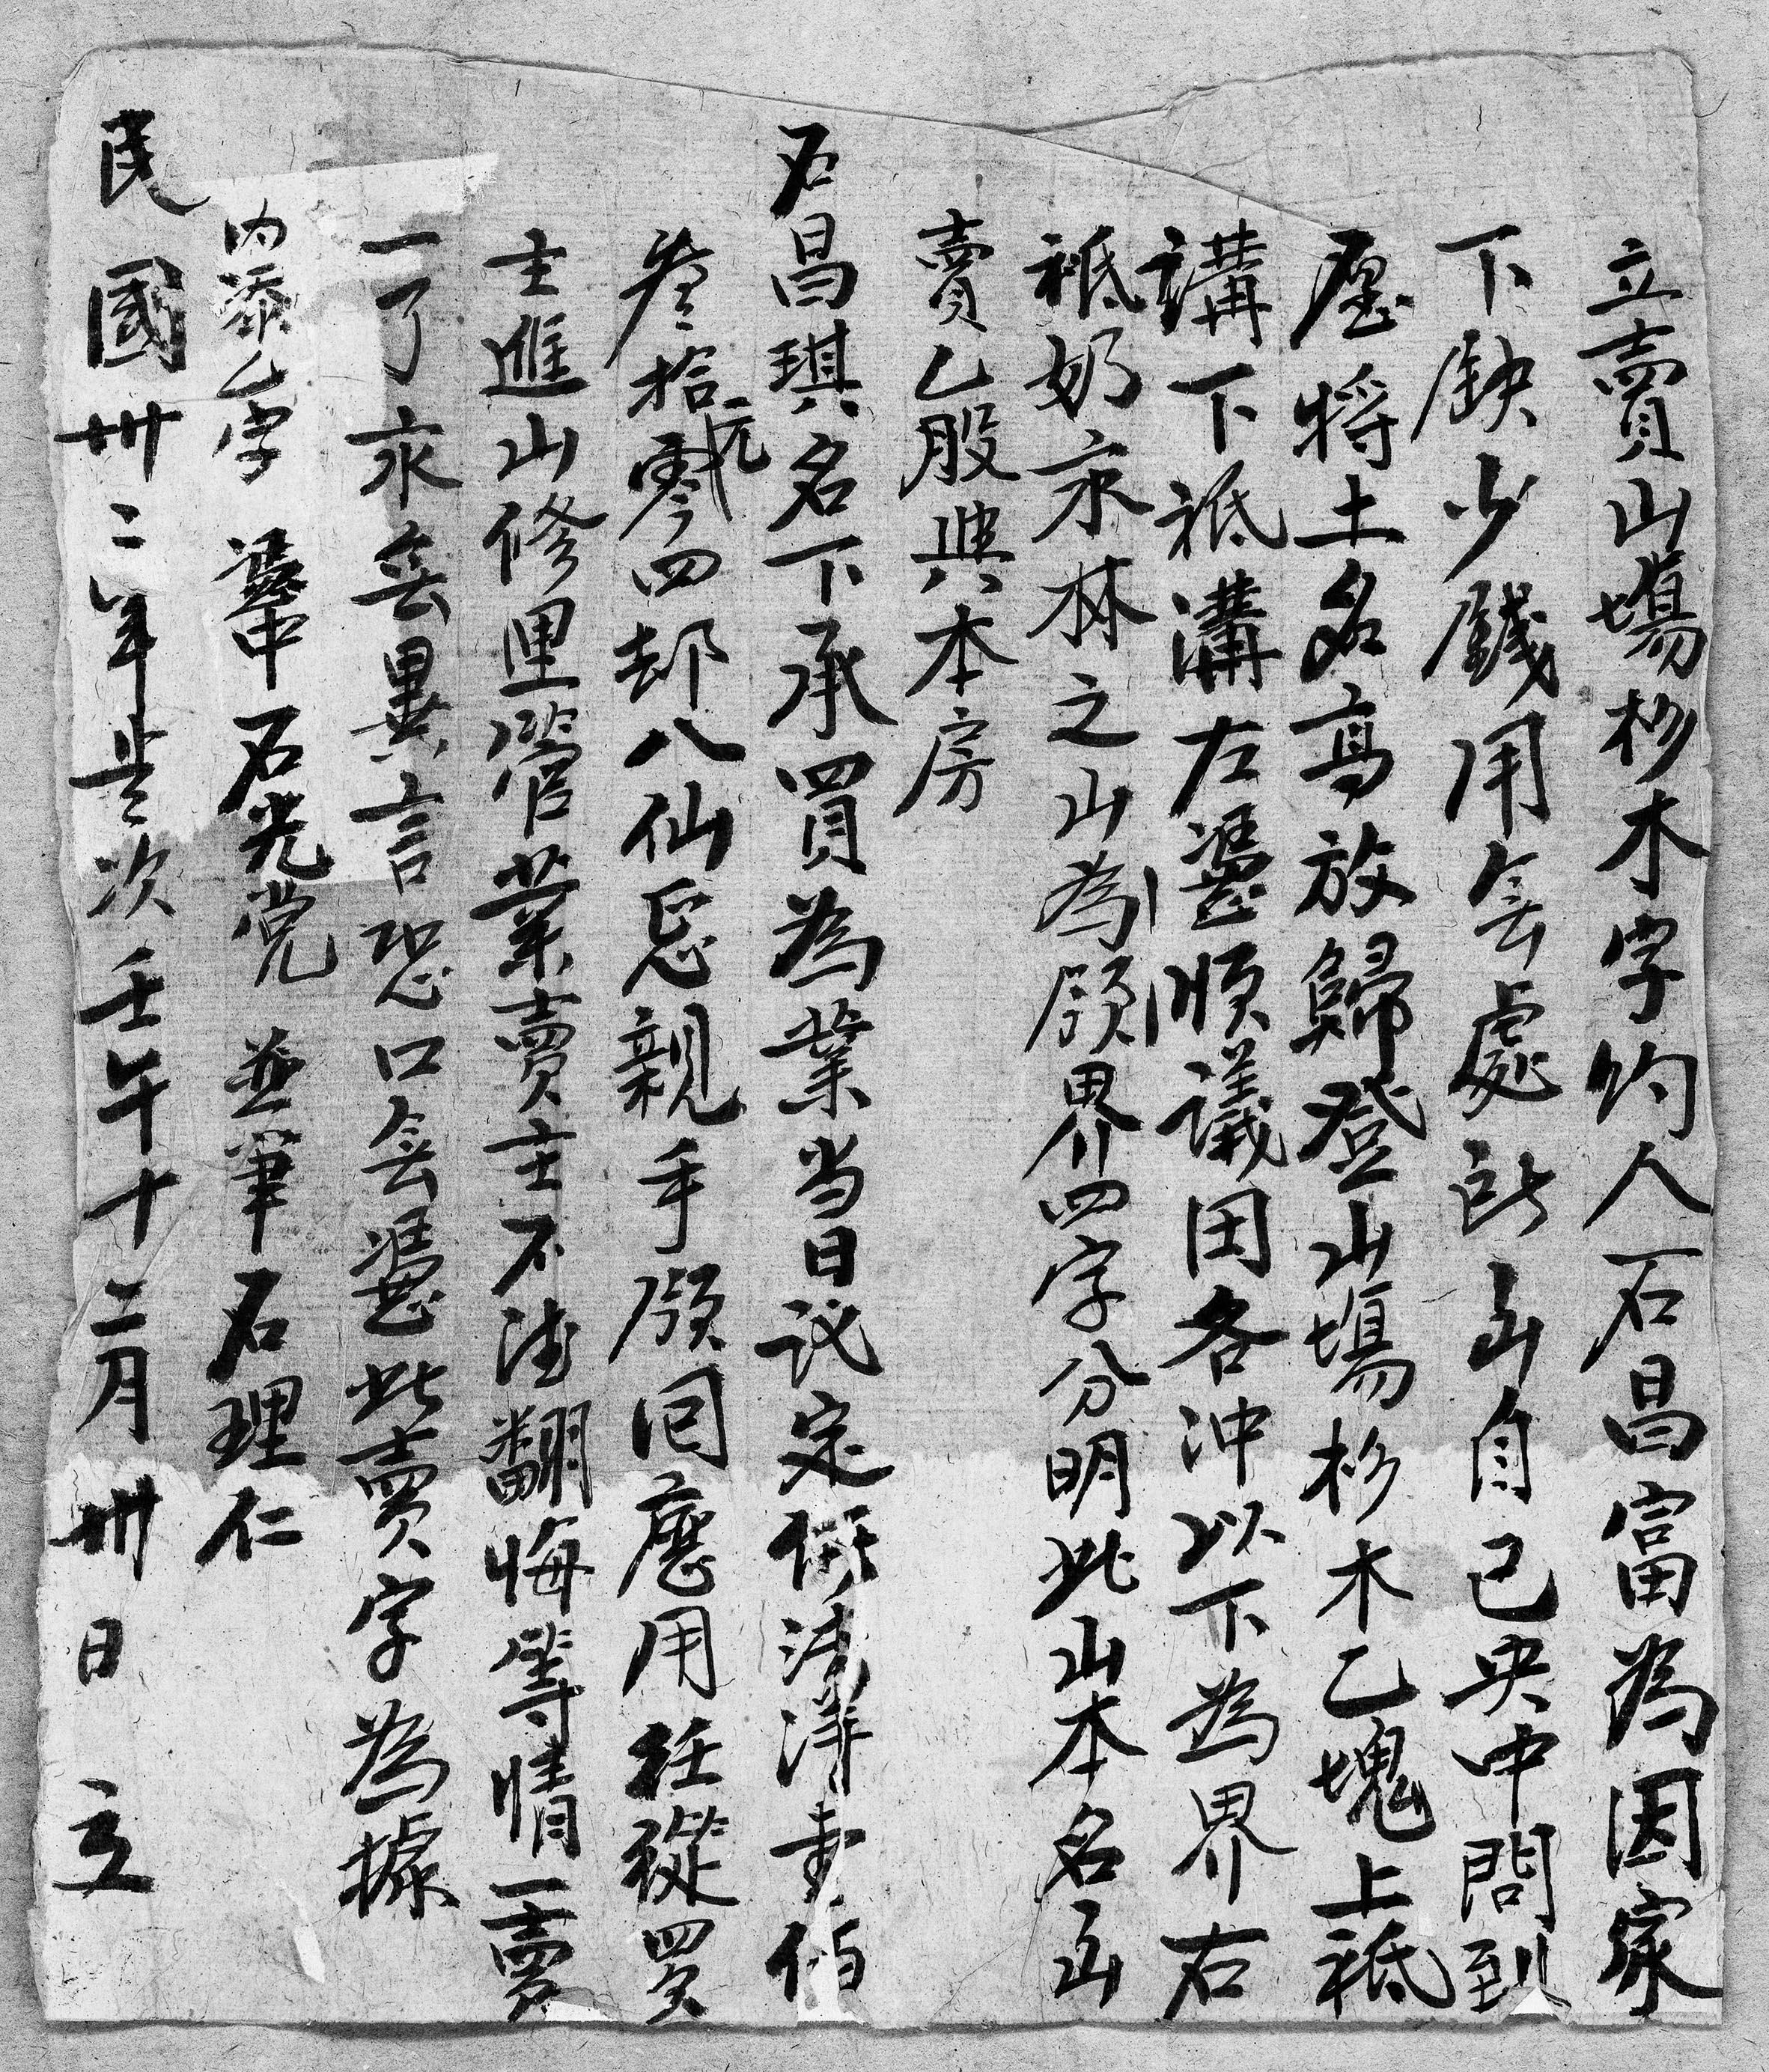 立賣山塲杉木字約人石昌富為因家
下缺少錢用無處所出自己央中問到
屋將土名高放歸登山塲杉木乙塊上祗
講下祗溝左憑順議田各沖以下為界右
祗奶永林之山為領界四字分明此山本名出
賣乙股與本房
石昌琪名下承買為業当日议定價洋壹伯
叁拾零元四却八仙忘親手領回應用任從買
主進山修理管業賣主不得翻悔等情一賣
一了永無異言恐口無憑此賣字為據
内添乙字 憑中 石光党 並筆 石理仁
民國卅二年歲次壬午十二月卅日 立